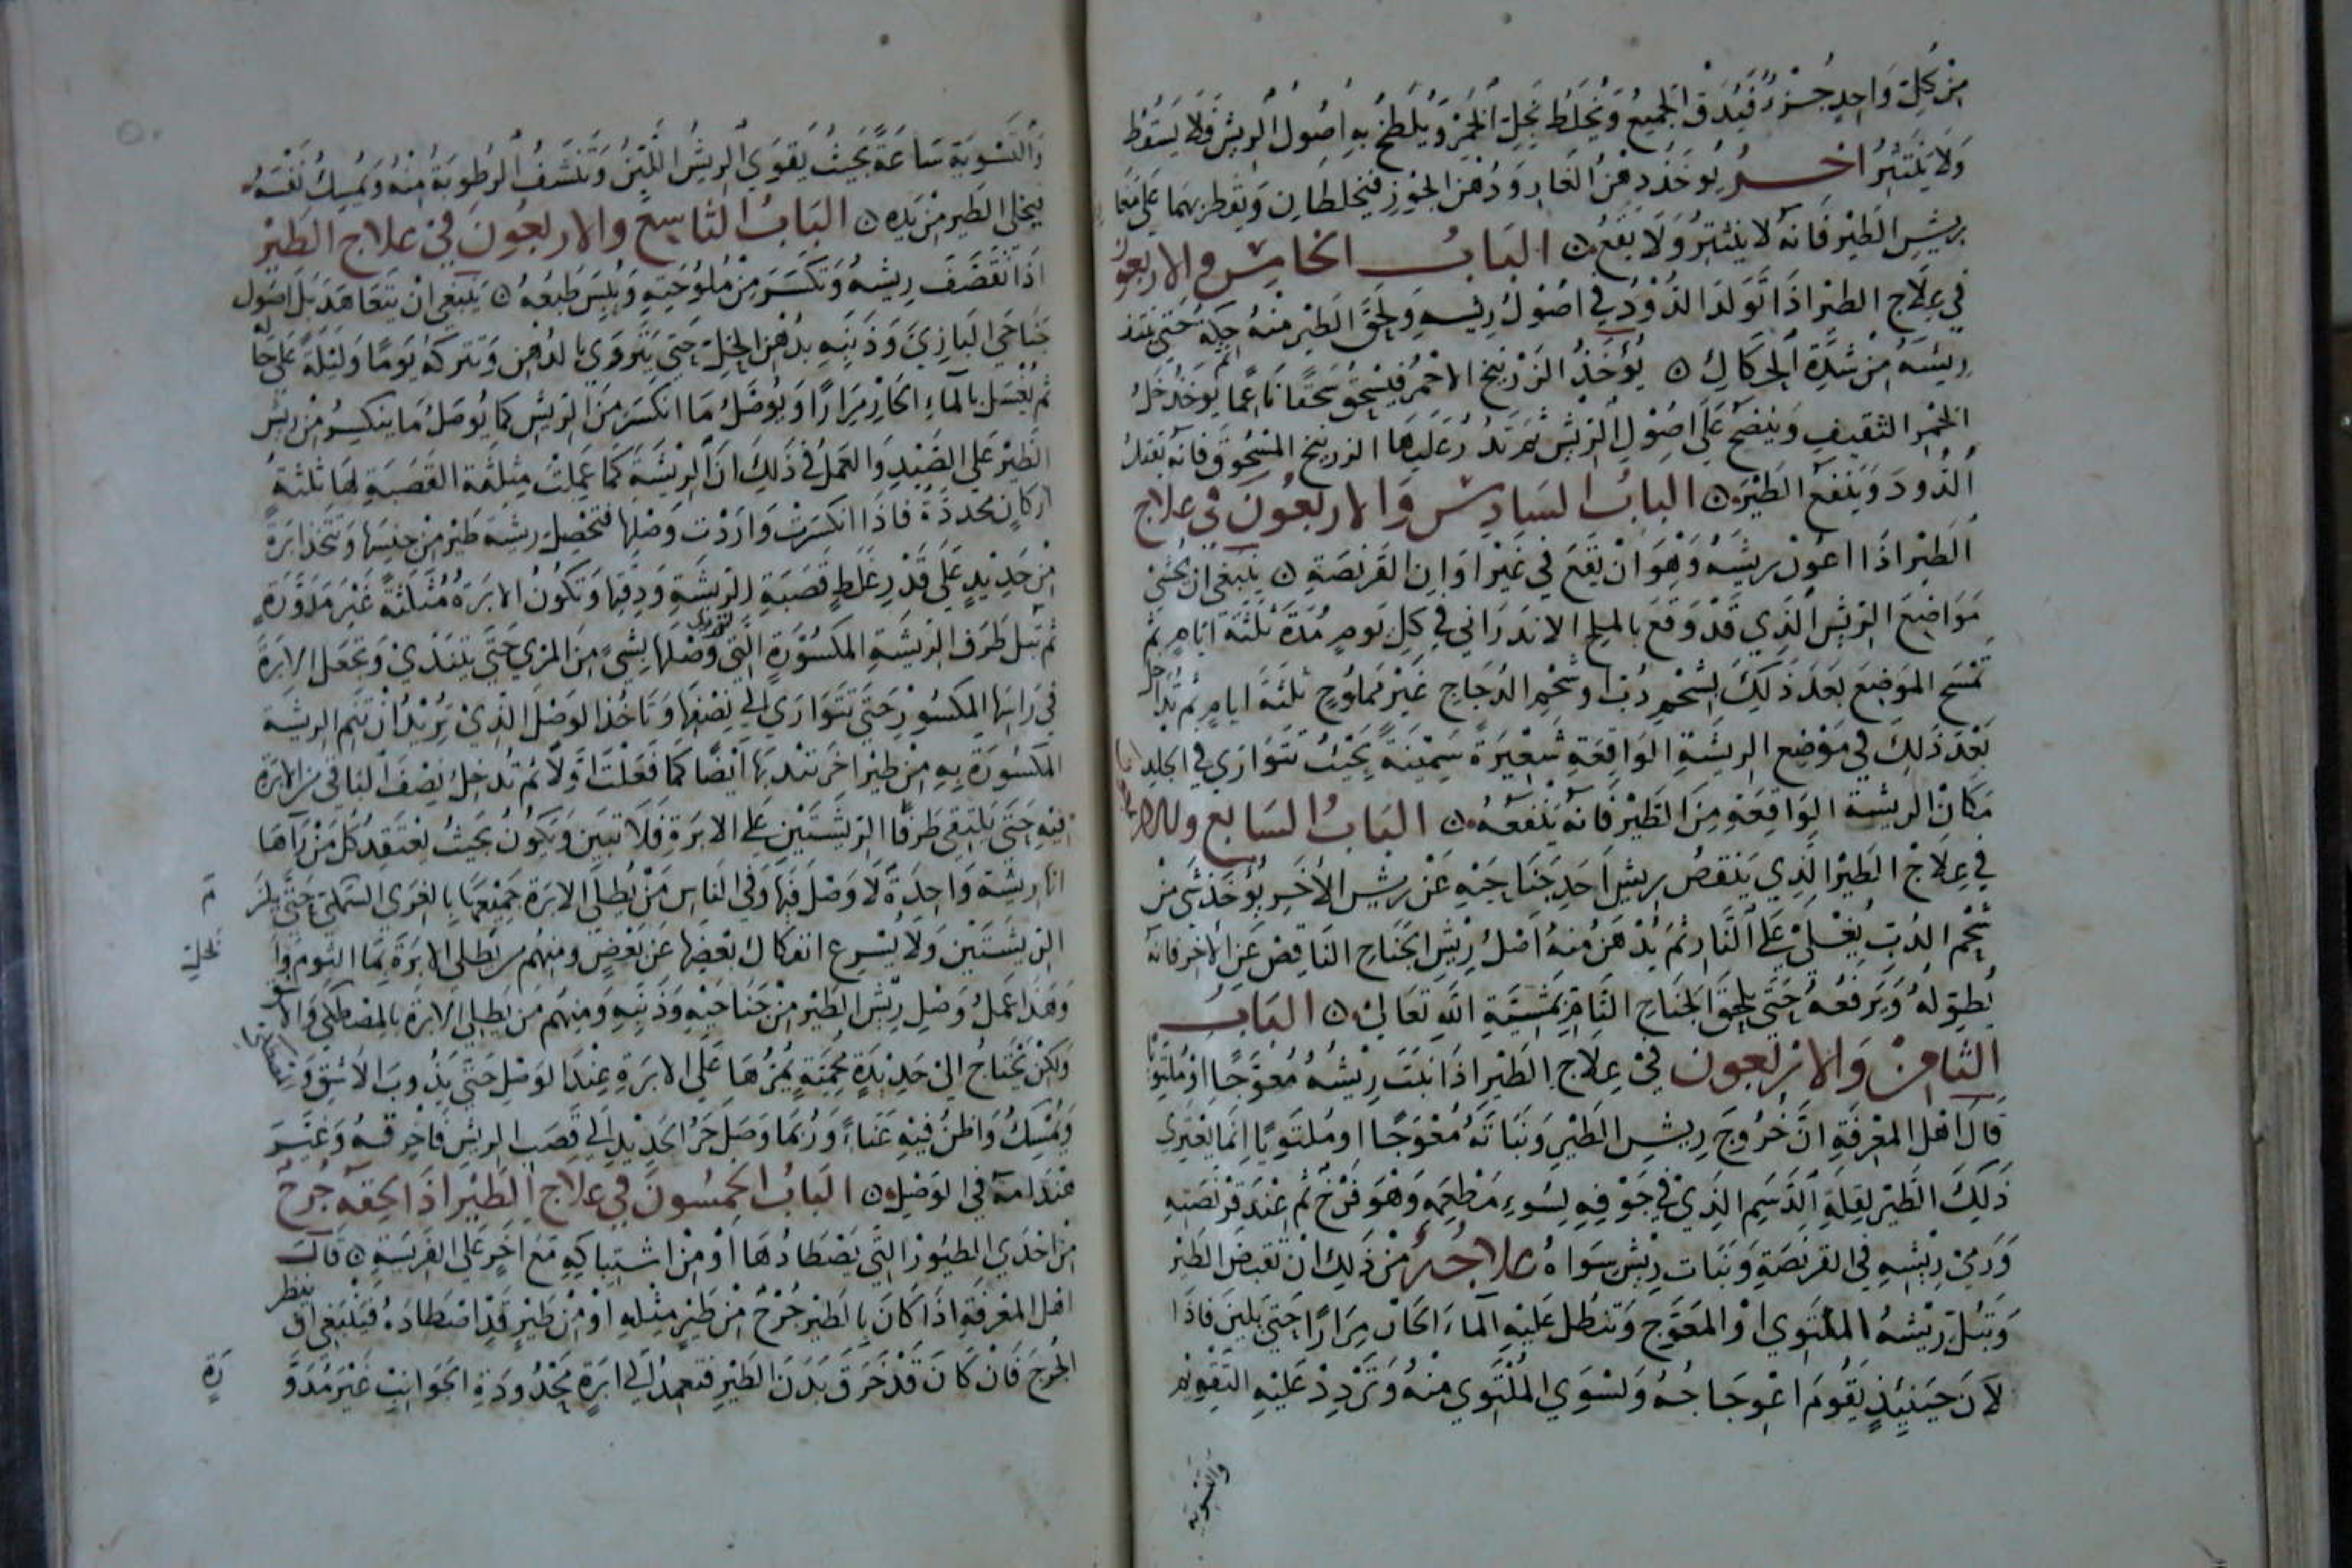 من كل واحد جزؤ فيدق الجميع ويخلط بخل الخمر ويلطخ به اصول الريش فلا يسقط
ولا ينتثر اخر يوخذ دهن الغار ودهن الجوز فيخلطان ويقطر بهما على
بريش الطير فانه لا ينتثر ولا يقع الباب الخامس والاربعون
في علاج الطير اذا تولد الدود في اصول ريشه ولحق الطير منه حكة حتى
ريشه من شدة الحكاك يؤخذ الزرنيخ الاحمر فيسحق سحقا ناعما ثم يوخذ خل
الخمر الثقيف وينضح على اصول الريش ثم تذر عليها الزرنيخ المسحوق فانه يقتل
الدود وينفع الطير الباب السادس والاربعون في علاج
الطير اذا اعون ريشه وهو ان يقع في غير اوان القرنصة ينبغي ان تحشى
مواضع الريش الذي قد وقع بالملح الاندراني في كل يوم مدة ثلثة ايام ثم
تمسح الموضع بعد ذلك بشحم دب او شحم الدجاج غير مملوح ثلثة ايام ثم تدخل
بعد ذلك في موضع الريشة الواقعة شعيرة سمينة بحيث تتوارى في الجلد
مكان الريشة الواقعة من الطير فانه ينفعه الباب السابع والاربعون
في علاج الطير الذي ينقص ريش احد جناحيه عن ريش الاخر يؤخذ شئ من
شحم الدب يغلى على النار ثم يدهن منه اصل ريش الجناح الناقص عن الاخر فانه
يطوله ويرفعه حتى يلحق الجناح التام بمشيّة الله تعالى الباب
الثامن والاربعون في علاج الطير اذا نبت ريشه معوجا او ملتويا
قال اهل المعرفة ان خروج ريش الطير ونباته معوجا او ملتويا انما يعتري
ذلك الطير لقلة الدسم الذي في جوفه لسوء مطعمه وهو فرخ ثم عند قرنصته
ورمي ريشه في القرنصة ونبات ريش سواه علاجه من ذلك ان تقبض الطير
وتبل ريشه الملتوي او المعوج وتنطل عليه الماء الحار مرارا حتى يلين فاذا
لان حينيذ يقوم اعوجاجه ويسوي الملتوي منه وتردد عليه التقويم
والتسوية
والتسوية ساعة بحيث يقوي الريش اللين وتنشف الرطوبة منه ويمسك نفسه
فيخلى الطير من يده الباب التاسع والاربعون في علاج الطير
اذا تقصف ريشه وتكسر من ملوحته ويبس طبعه ينبغي ان يتعاهد بل اصول
جناحي البازي وذنبه بدهن الخل حتى يتروي بالدهن وتتركه يوما وليلة على حاله
ثم يغسل بالماء الحار مرارا ويوصل ما انكسر من الريش كما يوصل ما ينكسر من ريش
الطير على الصيد والعمل في ذلك ان الريشة كما عملت مثلثة القصبة لها ثلثة
اركان محددة فاذا انكسرت واردت وصلها فتحصل ريشة طير من جنسها وتتخذ ابرة
من حديد على قدر غلظ قصبة الريشة ودقتها وتكون الابرة مثلثة غير مدورة
ثم تبل طرف الريشة المكسورة التي تريد وصلها بشئ من المري حتى يتندى وتجعل الابرة
في راسها المكسور حتى تتوارى الى نصفها وتاخذ الوصل الذي تريد ان تتم الريشة
المكسورة به من طير اخر تنديها ايضا كما فعلت اولا ثم تدخل نصف الباقي من الابرة
فيه حتى يلتقي طرفا الريشتين على الابرة فلا تبين ويكون بحيث يعتقد كل من رآها
انها ريشة واحدة لا وصل فيها وفي الناس من يطلى الابرة جميعها بالغرى السمك حتى يلزم
الريشتين ولا يسرع انفكاك بعضها عن بعض ومنهم من يطلى الابرة بما الثوم والخل
وهذا عمل وصل ريش الطير من جناحيه وذنبه ومنهم من يطلى الابرة بالمصطكى والاشق
ولكن يحتاج الى حديدة محمية يمرها على الابرة عند الوصل حتى يذوب الاشق
ويمسك واظن فيه عناء وربما وصل حر الحديد الى قصب الريش فاحرقه وغير
هندامه في الوصل الباب الخمسون في علاج الطير اذا لحقه جرح
من احدى الطيور التي يصطادها او من اشتباكه مع اخر على الفريسة قال
اهل المعرفة اذا كان بالطير جرح من طير مثله او من طير قد اصطاده فينبغي ان ينظر
الجرح فان كان قد خرق بدن الطير فتعمد الى ابرة محدودة الجوانب غير مدورة